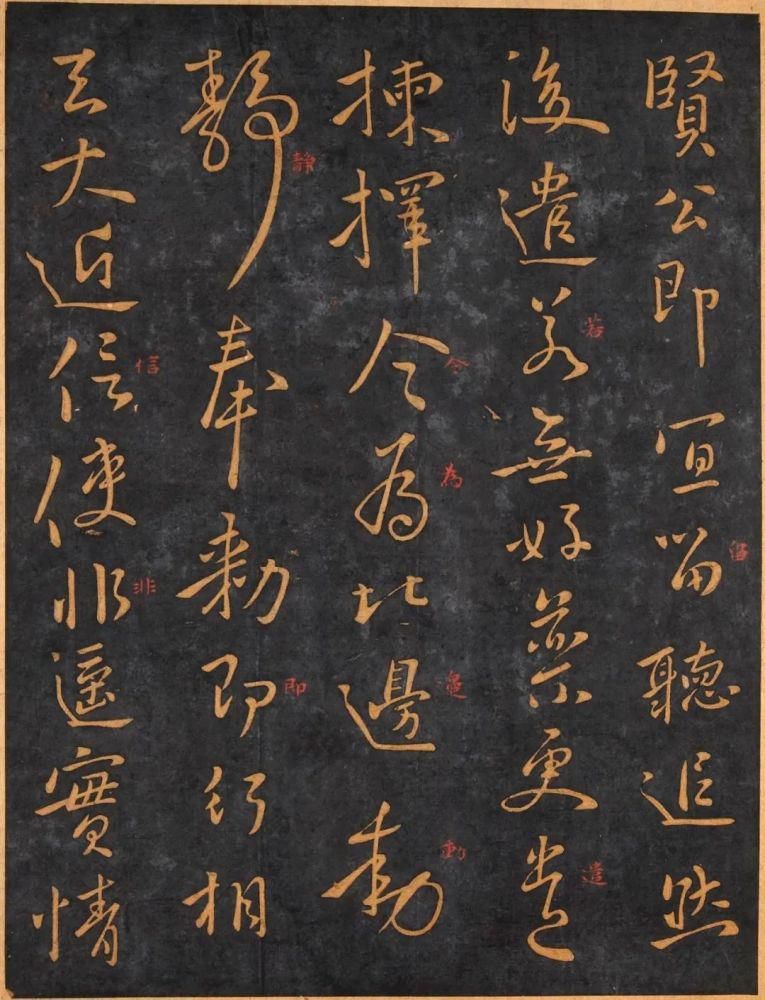 賢公即宜留聽追然
留
後遣若無好藥更遣
若
遣
揀擇令為比邊動
令
為
邊
動
靜奉勅即行相
靜
即
去大近信使非遙實情
信
非